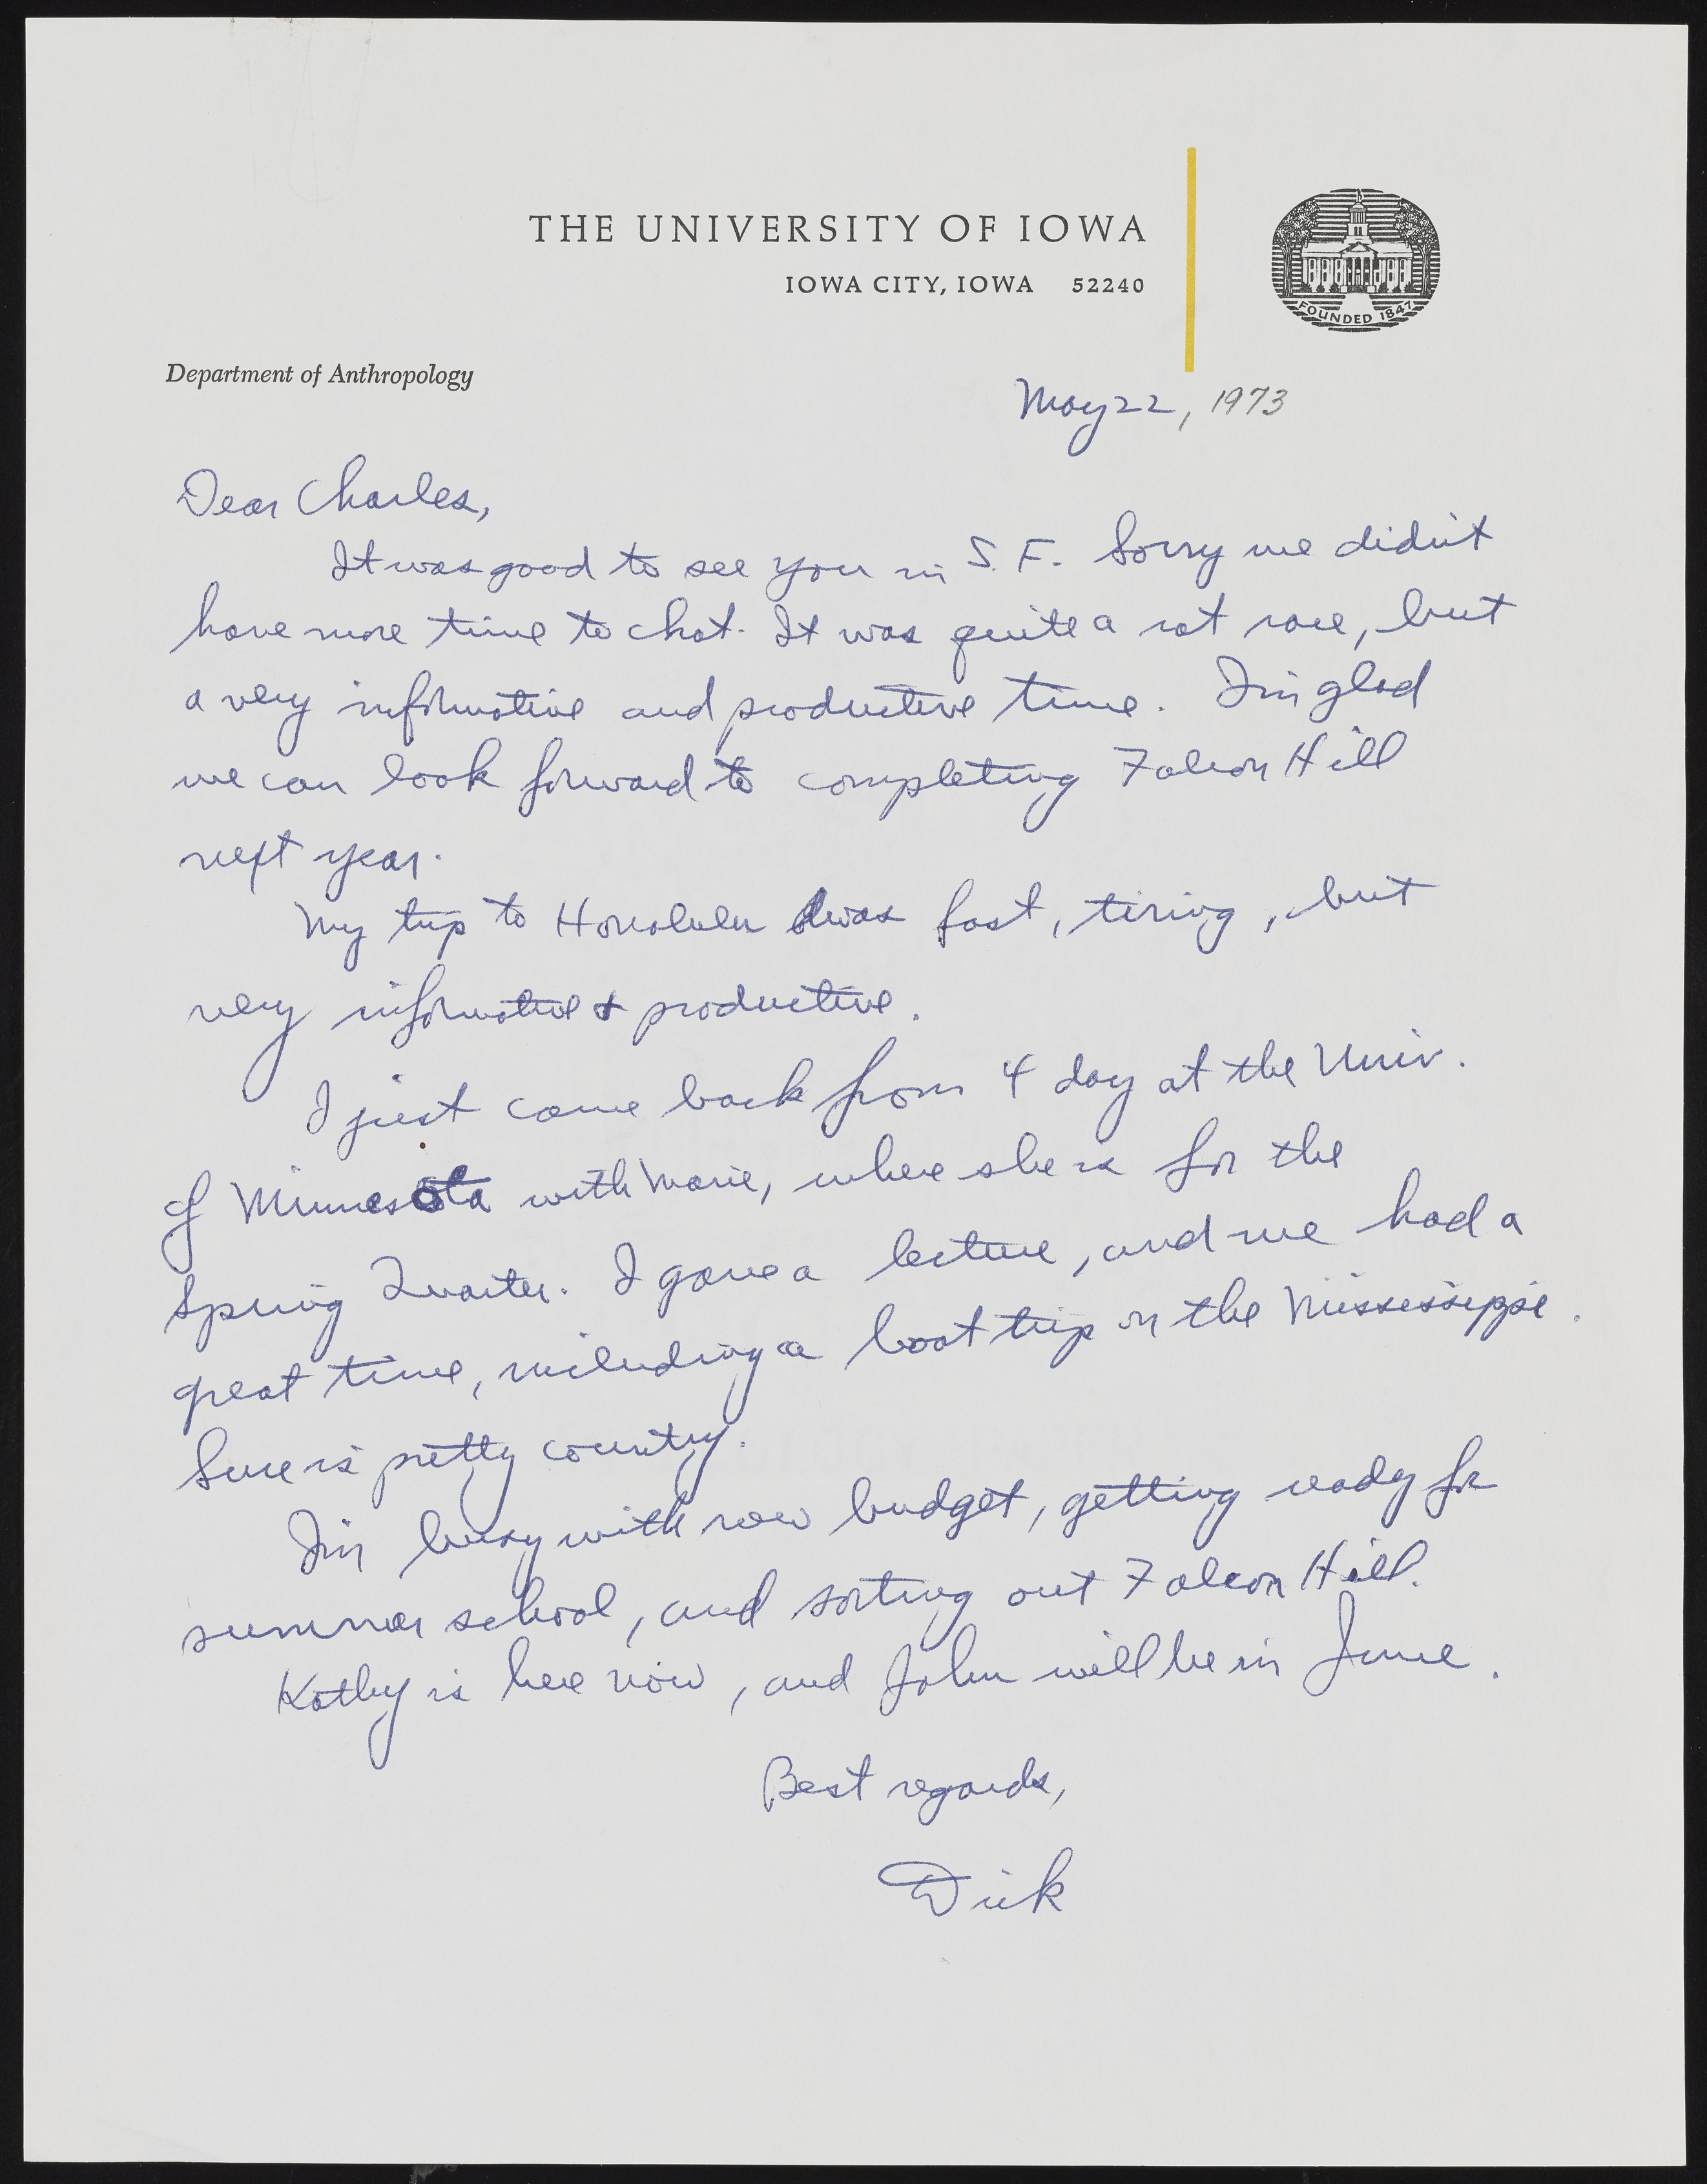 THE UNIVERSITY OF IOWA
IOWA CITY, IOWA 52240
FOUNDED 1847
Department of Anthropology
May 22, 1973
Dear Charles,
It was good to see you in S. F. Sorry we didn't
have more time to chat. It was quite a rat race, but
a very informative and productive time. I'm glad
we can look forward to completing Falcon Hill
next year.
My trip to Honolulu was fast, tiring, but
very informative & productive.
I just came back from 4 day at the Univ.
of Minnesota with Marie, where she is for the
Spring Quarter. I gave a lecture, and we had a
great time, including a boat trip on the Mississippi.
Sure is pretty country.
I'm busy with new budget, getting ready for
summer school, and sorting out Falcon Hill.
Kathy is here now, and John will be in June.
Best regards,
Dick